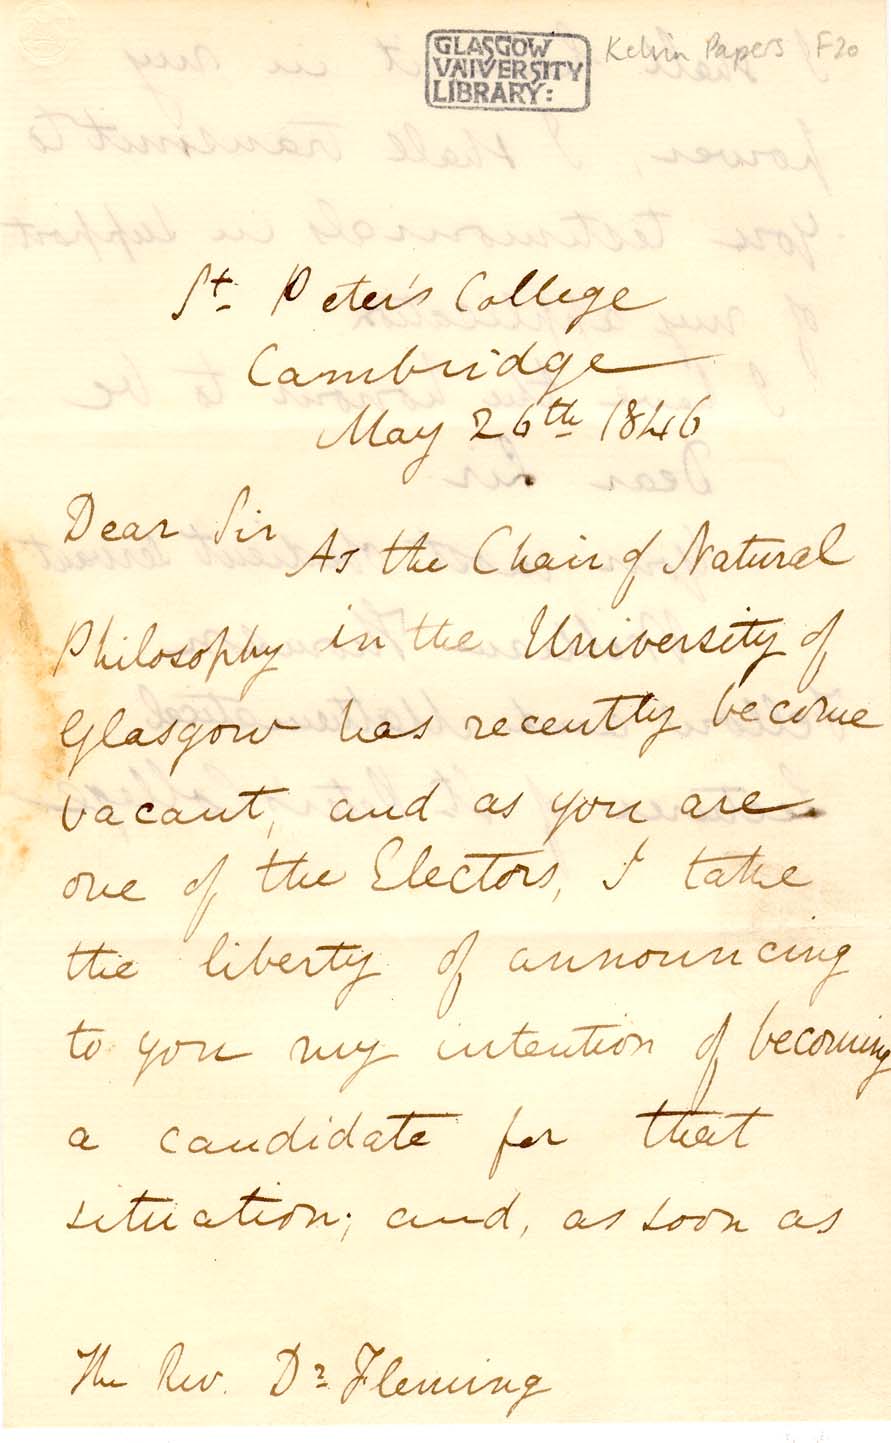 GLASGOW
UNIVERSITY
LIBRARY:
Kelvin Papers F20
St. Peter's College
Cambridge
May 26th 1846
Dear Sir
As the Chair of Natural
Philosophy in the University of
Glasgow has recently become
vacant, and as you are
one of the Electors, I take
the liberty of announcing
to you my intention of becoming
a candidate for that
situation; and, as soon as
The Rev. Dr Fleming